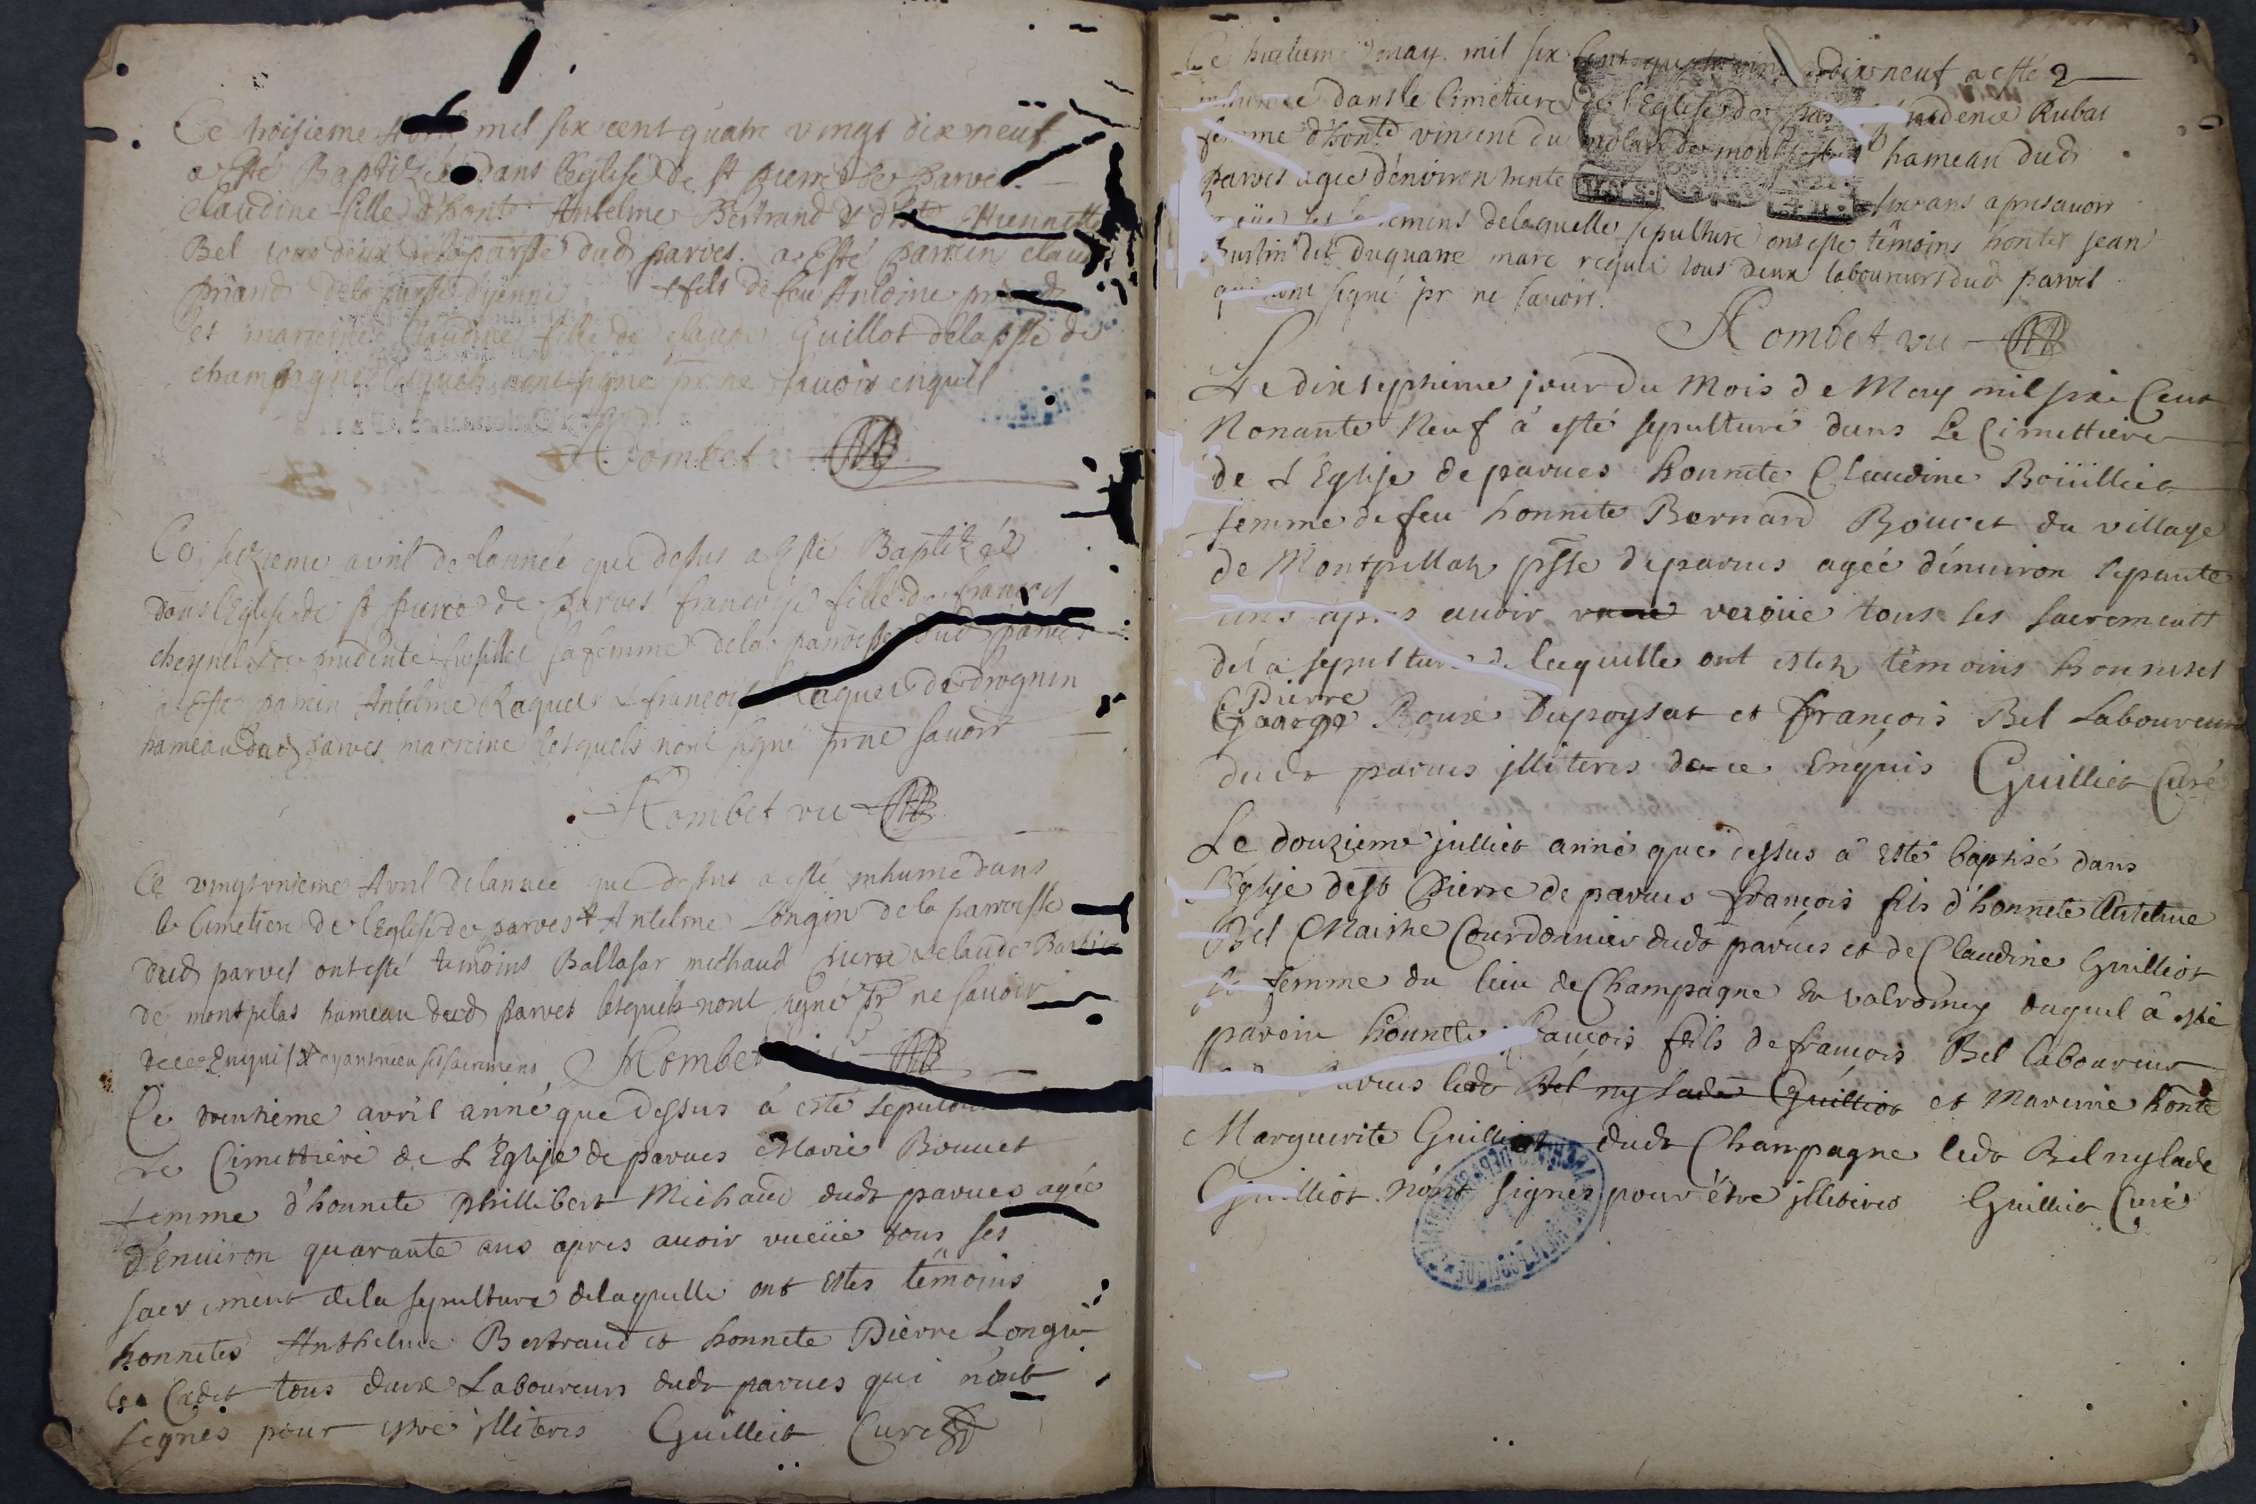 Ce troisieme Avril mil six cent quatre vingt dix neuf
a esté Baptizée dans l'Eglise de st pierre de parves
claudine fille d'honte Antelme Bertrand & d'hte Etiennette
Bel tous deux de la parsse dud parves. a esté parrein claude
priand de la parsse d'yenne & fils de feu Antoine priand
et marreine claudine fille de claude Guillot de la psse de
champagne lesquels n'ont signé pr ne savoir enquis
Hombet
Ce seizieme avril de l'année que dessus a esté Baptizée
dans l'Eglise de st pierre de parves françoise fille de françois
cheynel & de prudente sa femme de la parroisse dud parves
a esté parrein Antelme Raquet & françoise Raquet de drognin
hameau dud parves marreine lesquels n'ont signé pr ne savoir
Hombet vic
Ce vingt unieme Avril de l'année que dessus a esté inhumé dans
le Cimetiere de l'Eglise de parves Antelme Longin de la parroisse
dud parves ont esté temoins Baltasar michaud pierre & claude
de montpelas hameau dud parves lesquels n'ont signé pr ne savoir
de ce Enquis & ayant receu ses sacremens Hombet
Ce trentieme avril année que dessus a esté sepulturé
Cimettiere de L'Eglise de parues Marie Bouuet
femme d'honnete phillibert Michaud dudt parues agée
d'enuiron quarante ans apres auoir tous ses
sacrement de la sepulture de laquelle ont estes témoins
honnetes Anthelme Bertrand et honnete Pierre Longin
Cadet tous deux Laboureurs dudt parues qui n'ont
signés pour estre illiteres Guilliet Curé
Ce huitieme may mil six cent quatre vint et dix neuf a esté 2
inhumée dans le Cimetiere de l'Eglise de parves prudence Rubat
femme d'honte vincent du molard de hameau dudt
parves agée d'environ trente
six ans apres avoir
les sacremens de laquelle sepulture ont este témoins hontes jean
dit duquarre marc requet tous deux laboureurs dud parves
qui n'ont signé pr ne savoir.
Hombet vic
Le dix septieme jour du Mois de May mil six Cent
Nonante Neuf à esté sepulturé dans Le Cimettiere
de L'Eglise de parues honnete Claudine Boüilliet
femme de feu honnete Bernard Bouuet du village
de Montpellaz psse de parues agée d'enuiron
ans apres auoir tous ses sacrements
de la sepulture de laquelle ont estez témoins honnetes
Pierre
George Roux Dupoysat et François Bel Laboureurs
dudt parues illiteres de ce Enquis Guilliet Curé
Le douzieme julliet anné que dessus a Esté baptisé dans
l'Eglise de st Pierre de parues françois fils d'honnete Antelme
Bel Maitre Courdonnier dudt parues et de Claudine Guilliot
sa femme du lieu de Champagne du valromey duquel a esté
parein honnete françois fils de françois Bel laboureur
parues ledt Bel ny lade Guilliot et Mareine honte
Marguerite Guilliot dudt Champagne ledt Bel ny lade
Guilliot n'ont signés pour étre illiteres Guilliet Curé